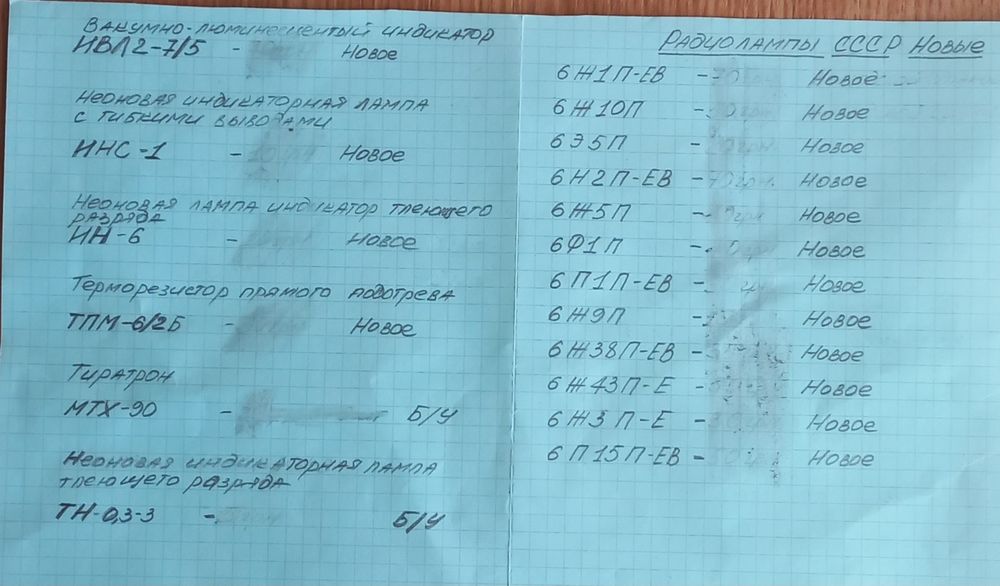 Вакумно-люминесцентый индикатор
ИВЛ2-7/5 - Новое
Неоновая индикаторная лампа
с гибкими выводами
ИНС-1 - Новое
Неоновая лампа индикатор тлеющего
разряда
ИН-6 - Новое
Терморезистор прямого подогрева
ТПМ-6/2Б - Новое
Тиратрон
МТХ-90 - Б/У
Неоновая индикаторная лампа
тлеющего разряда
ТН-0,3-3 - Б/У
Радиолампы СССР Новые
6Ж1П-ЕВ - Новое
6Ж10П - Новое
6Э5П - Новое
6Н2П-ЕВ - Новое
6Ж5П - Новое
6Ф1П - Новое
6П1П-ЕВ - Новое
6Ж9П - Новое
6Ж38П-ЕВ - Новое
6Ж43П-Е - Новое
6Ж3П-Е - Новое
6П15П-ЕВ - Новое